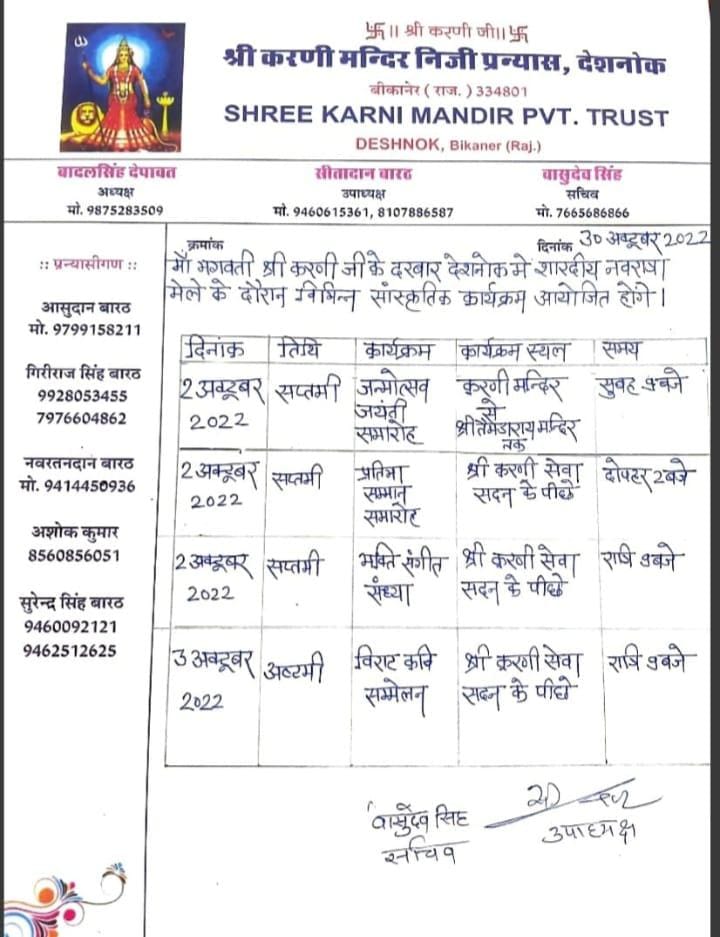 卐॥ श्री करणी जी॥卐
श्री करणी मन्दिर निजी प्रन्यास, देशनोक
बीकानेर ( राज. ) 334801
SHREE KARNI MANDIR PVT. TRUST
DESHNOK, Bikaner (Raj.)
बादलसिंह देपावत
अध्यक्ष
मो. 9875283509
सीतादान बारठ
उपाध्यक्ष
मो. 9460615361, 8107886587
वासुदेव सिंह
सचिव
मो. 7665686866
:: प्रन्यासीगण ::
आसुदान बारठ
मो. 9799158211
गिरीराज सिंह बारठ
9928053455
7976604862
नवरतनदान बारठ
मो. 9414450936
अशोक कुमार
8560856051
सुरेन्द्र सिंह बारठ
9460092121
9462512625
क्रमांक
दिनांक 30 अक्टूबर 2022
माँ भगवती श्री करणी जी के दरबार देशनोक मे शारदीय नवरात्रा
मेले के दौरान विभिन्न सांस्कृतिक कार्यक्रम आयोजित होगे।
दिनांक तिथि कार्यक्रम कार्यक्रम स्थल समय
2 अक्टूबर 2022 सप्तमी जन्मोत्सव जयंती समारोह करणी मन्दिर से श्री तेमडाराय मन्दिर तक सुबह 9 बजे
2 अक्टूबर 2022 सप्तमी प्रतिभा सम्मान समारोह श्री करणी सेवा सदन के पीछे दोपहर 2 बजे
2 अक्टूबर 2022 सप्तमी भक्ति संगीत संध्या श्री करणी सेवा सदन के पीछे रात्रि 9 बजे
3 अक्टूबर 2022 अष्टमी विराट कवि सम्मेलन श्री करणी सेवा सदन के पीछे रात्रि 9 बजे
वासुदेव सिंह
सचिव
उपाध्यक्ष